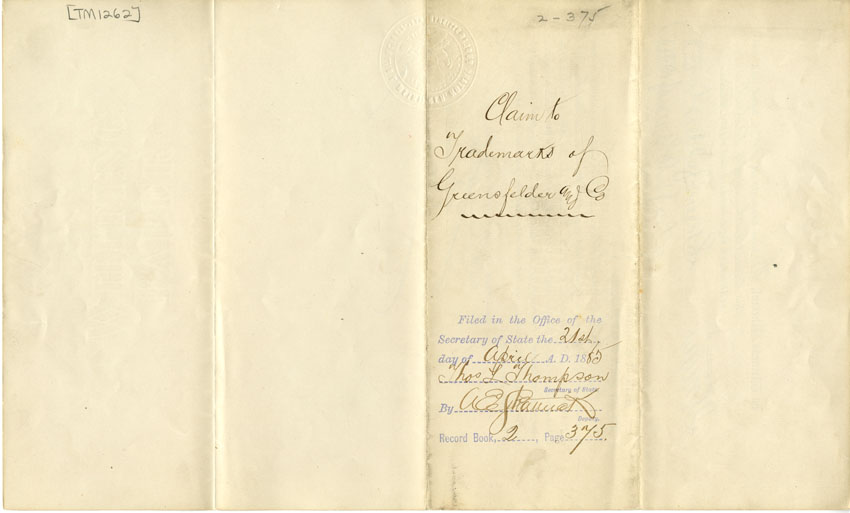 [TM1262]
2-375
Claim to
Trademarks of
Greensfelder and Co
Filed in the Office of the
Secretary of State the 21st
day of April A. D. 1885
Thos L Thompson
Secretary of State
By A E
Deputy.
Record Book, 2, Page 375.